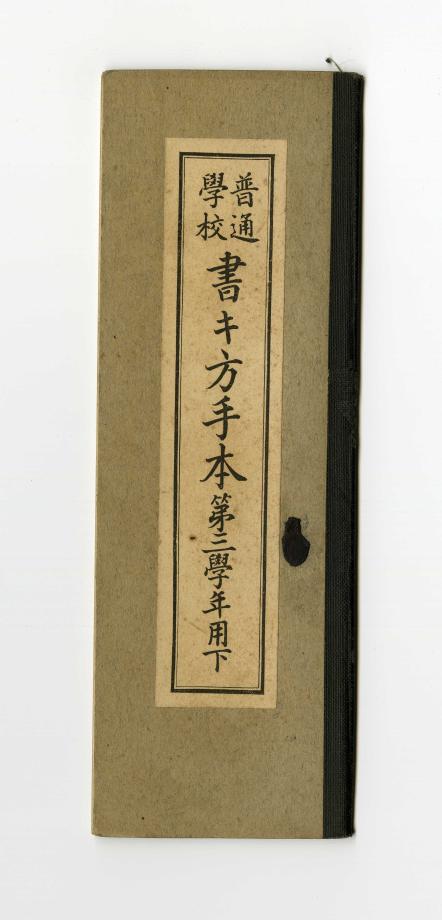 普通
學校
書キ方手本第三學年用下